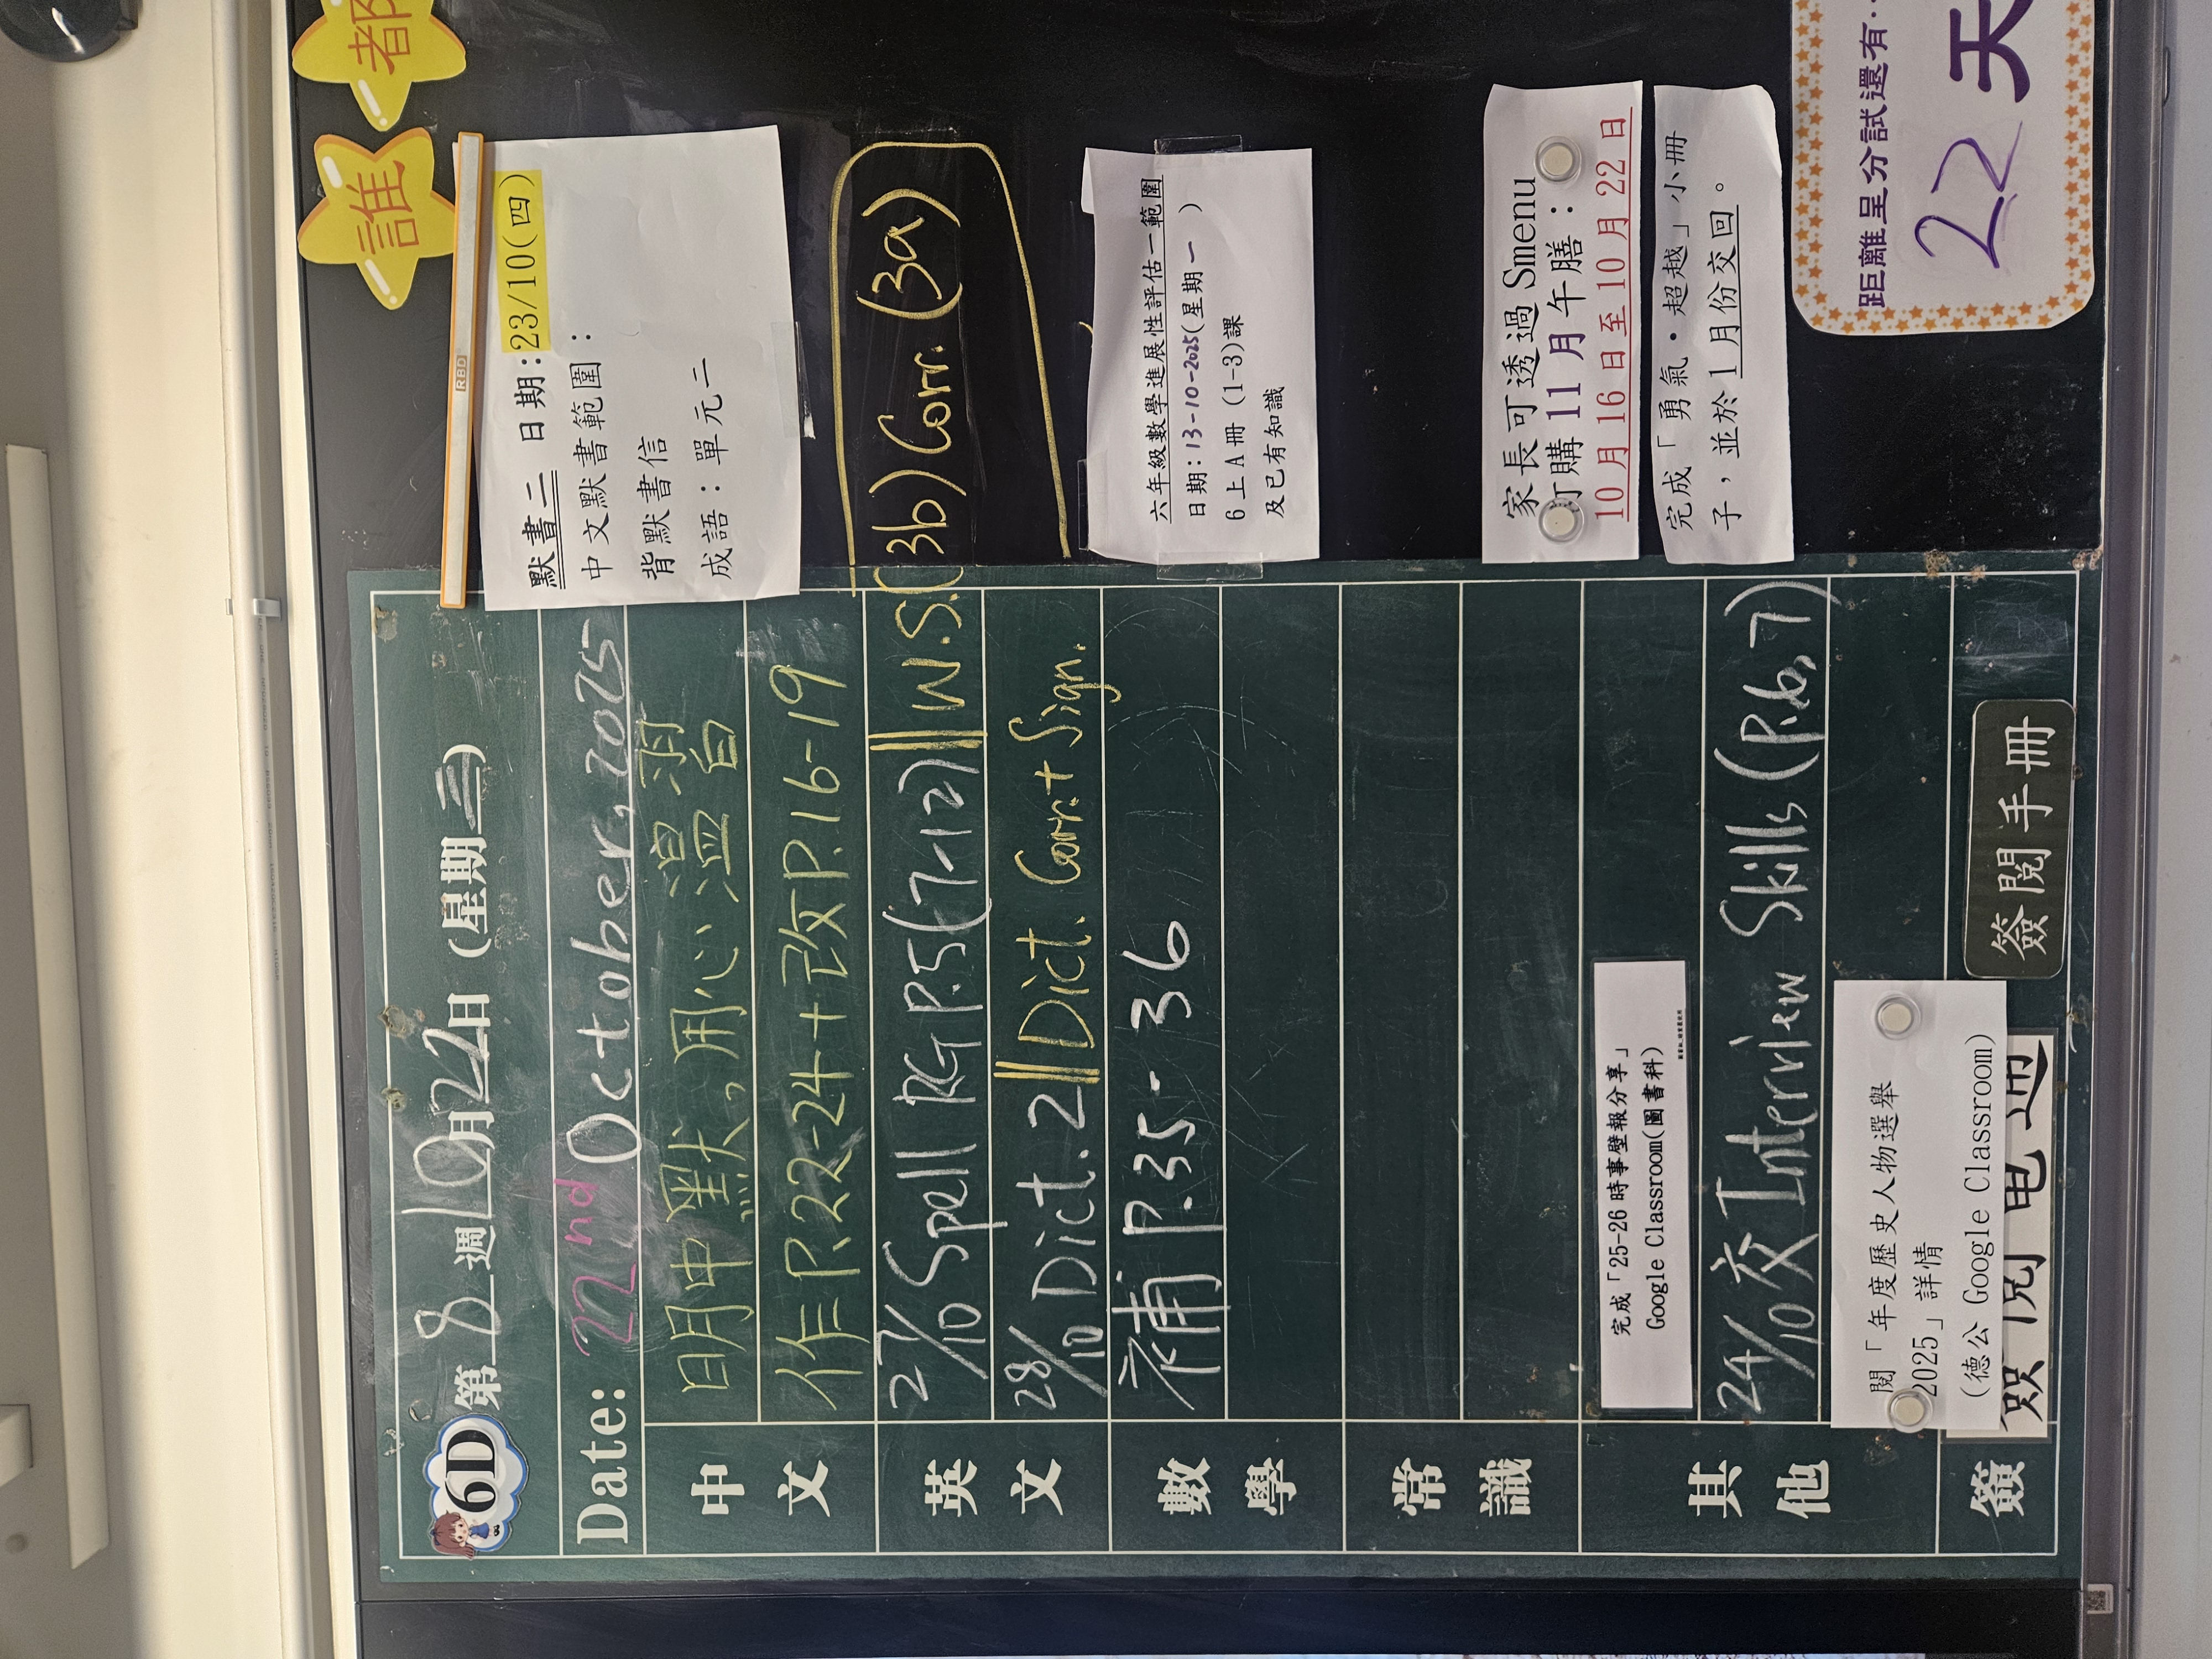 誰
都
6D 第 8 週 10月22日 (星期三)
Date: 22nd October, 2025
中文
明中默，用心溫習
作 P.22-24 + 改P.16-19
英文
27/10 Spell RG P.5 (7-12) || W.S. (3b) Corr. (3a)
28/10 Dict. 2 || Dict. Corr. + Sign.
數學
補 P.35-36
常識
其他
完成「25-26時事壁報分享」
Google Classroom(圖書科)
24/10 交 Interview Skills (P.6,7)
閱「年度歷史人物選舉
2025」詳情
(德公 Google Classroom)
簽
簽閱手冊
默書二 日期:23/10(四)
中文默書範圍：
背默書信
成語：單元二
RBD
六年級數學進展性評估一範圍
日期：13-10-2025(星期一)
6上A冊 (1-3)課
及已有知識
家長可透過 Smenu
訂購 11 月午膳：
10 月 16 日至 10 月 22 日
完成「勇氣・超越」小冊
子，並於 1 月份交回。
距離呈分試還有..
22 天